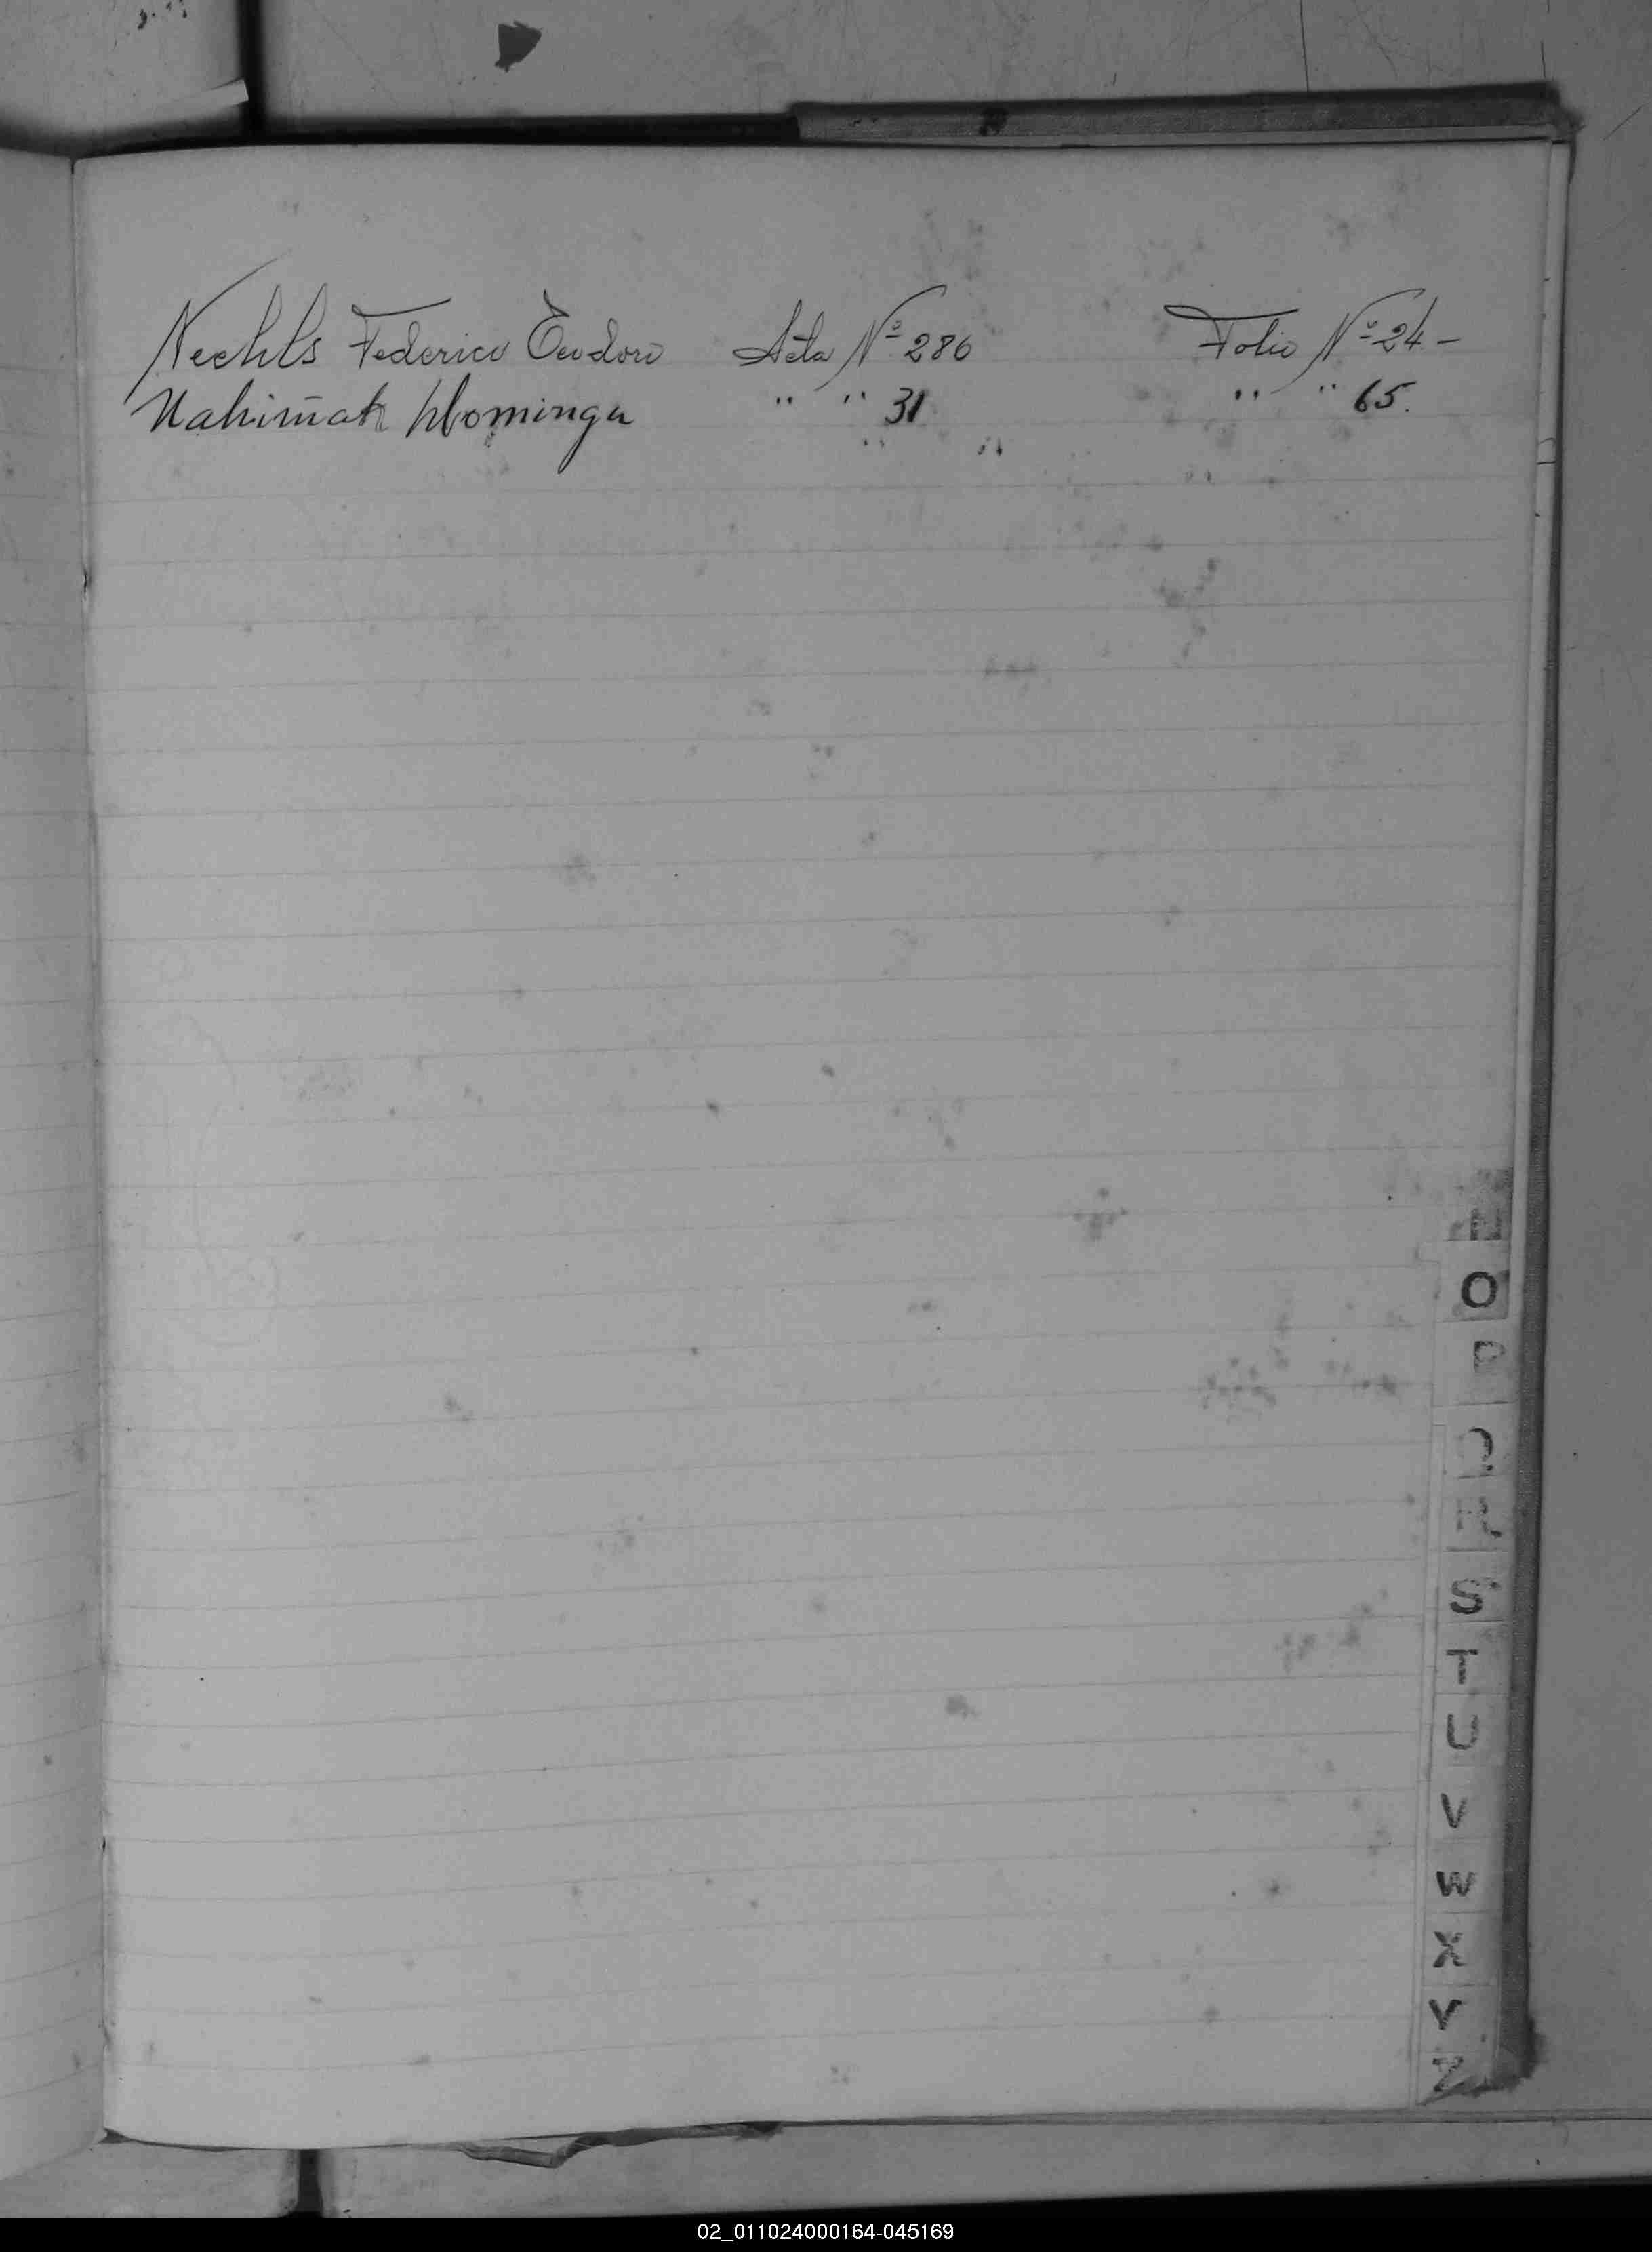 Nechls Federico Teodoro Acta Nº 286 Folio Nº 24 -
Nahimak Dominga " " 31 " " 65.
N
O
P
Q
R
S
T
U
V
W
X
Y
Z
02_011024000164-045169